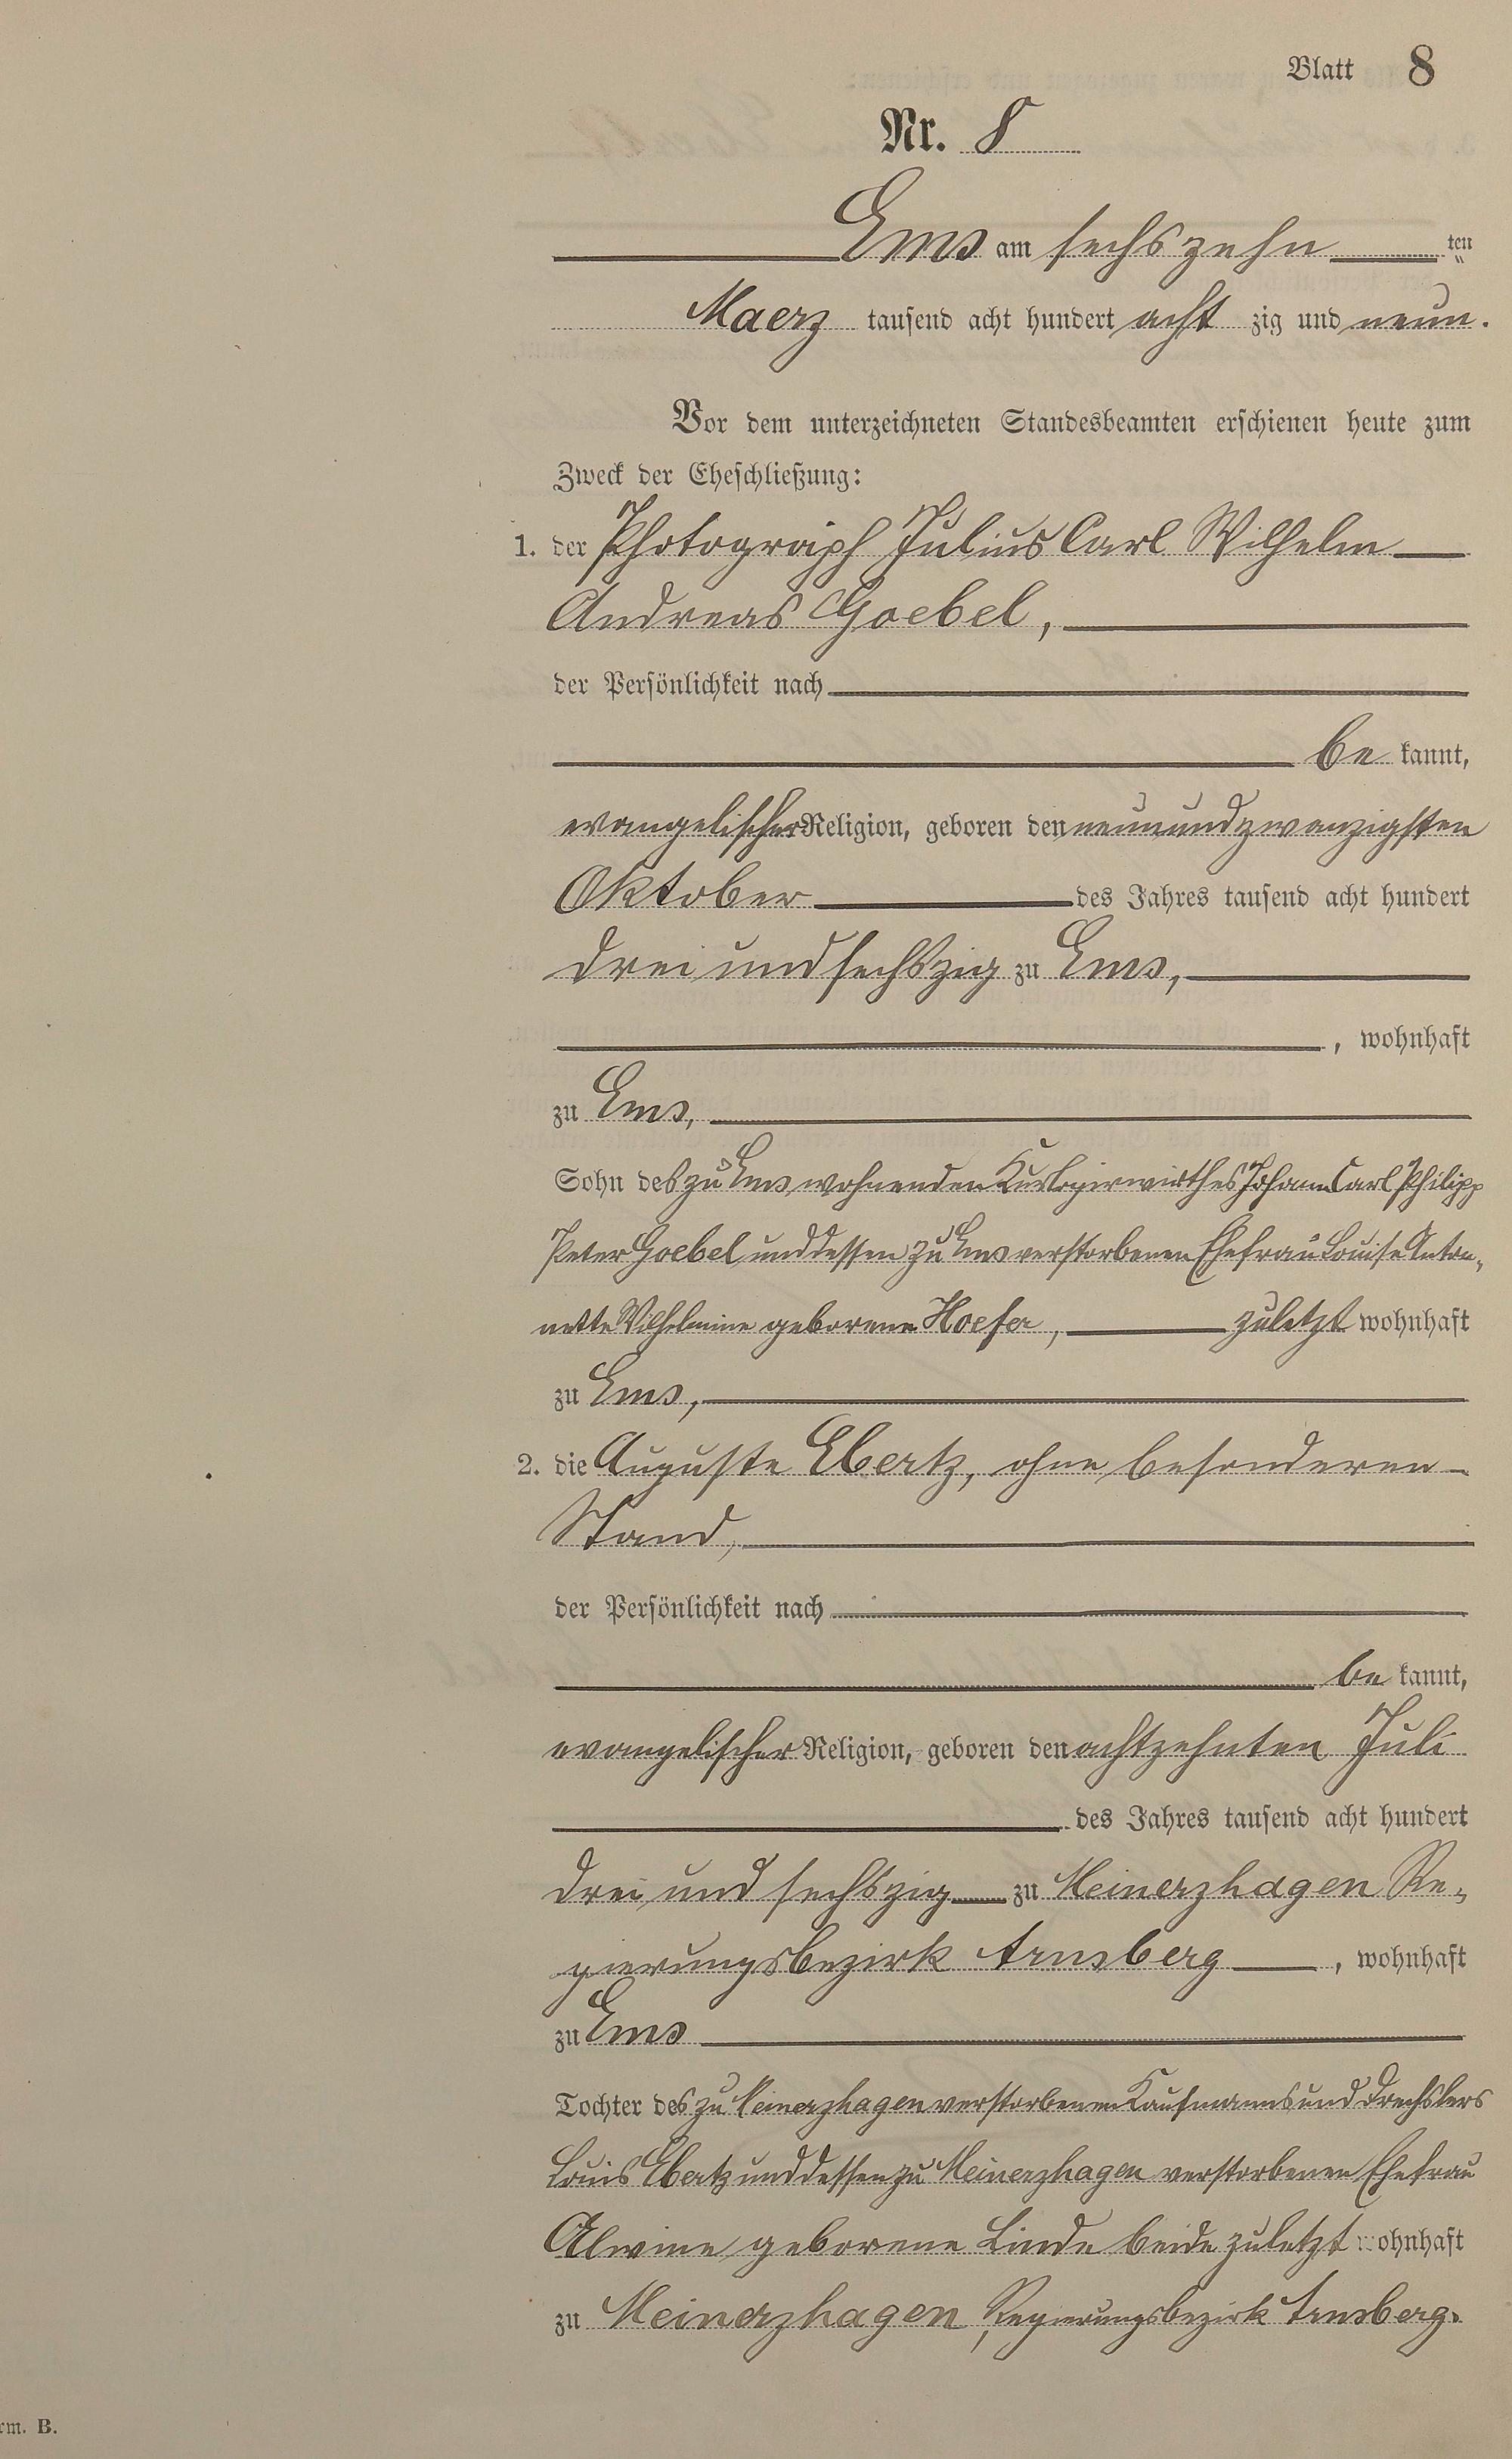 Blatt 8
Nr. 8
Ems am sechszehn ten
Maerz tausend acht hundert acht zig und neun.
Vor dem unterzeichneten Standesbeamten erschienen heute zum
Zweck der Eheschließung:
1. der Photograph Julius Carl Wilhelm
Andreas Goebel,
der Persönlichkeit nach
be kannt,
evangelischer Religion, geboren den neunundzwanzigsten
Oktober des Jahres tausend acht hundert
drei und sechszig zu Ems,
, wohnhaft
zu Ems,
Sohn des zu Ems wohnenden Johann Carl Philipp
Peter Goebel und dessen zu Ems verstorbenen Ehefrau Louise Anton-
nette Wilhelmine geborene Hoefer, zuletzt wohnhaft
zu Ems,
2. die Auguste Ebertz, ohne besonderen
Stand,
der Persönlichkeit nach
be kannt,
evangelischer Religion, geboren den achtzehnten Juli
des Jahres tausend acht hundert
drei und sechszig zu Meinerzhagen Re-
gierungsbezirk Arnsberg, wohnhaft
zu Ems
Tochter des zu Meinerzhagen verstorbenen Kaufmanns und Drechslers
Louis Ebertz und dessen zu Meinerzhagen verstorbenen Ehefrau
Alwine geborene Linde beide zuletzt wohnhaft
zu Meinerzhagen, Regierungsbezirk Arnsberg.
rm. B.